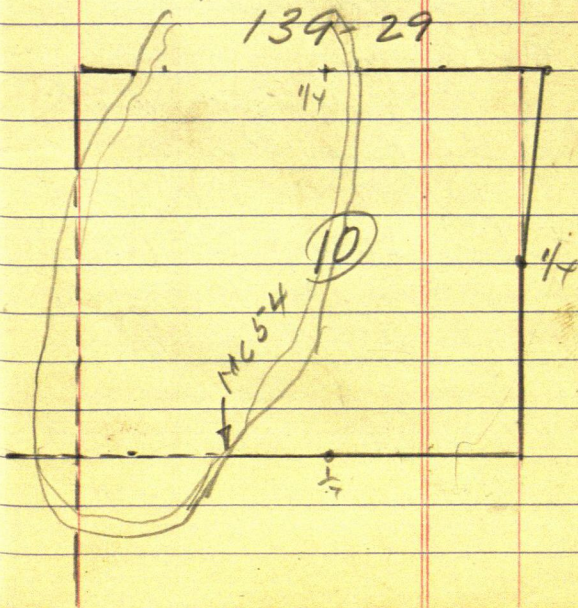 139-29
1/4
10
1/4
MC54
1/4